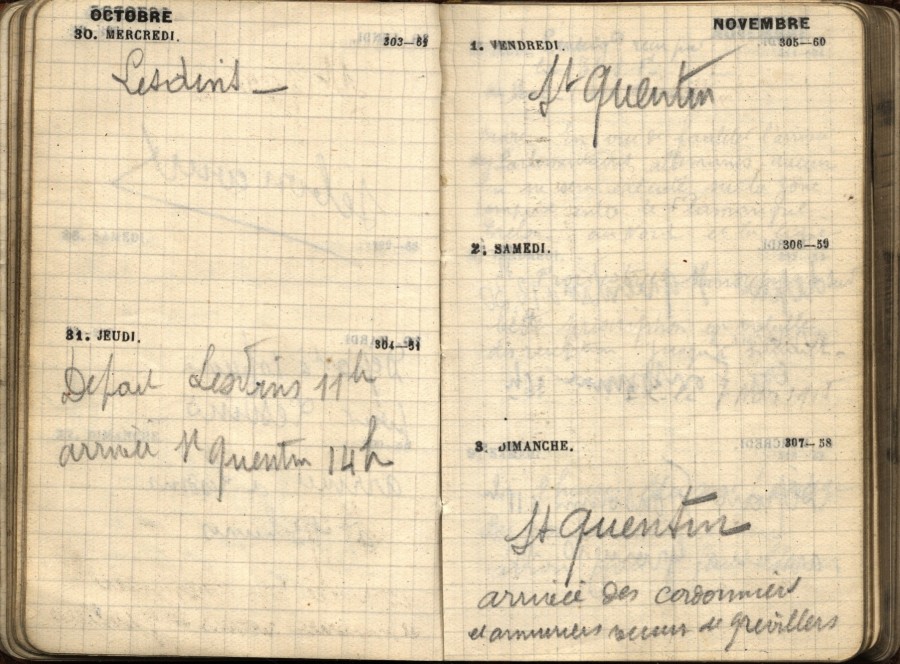 OCTOBRE
30. MERCREDI. 303—62
Lesdins —
31. JEUDI. 304—61
Depart Lesdins 11h
arrivée St Quentin 14h
NOVEMBRE
1. VENDREDI. 305—60
St Quentin
2. SAMEDI. 306—59
3. DIMANCHE. 307—58
St Quentin
arrivée des cordonniers
et armuriers de Grévillers